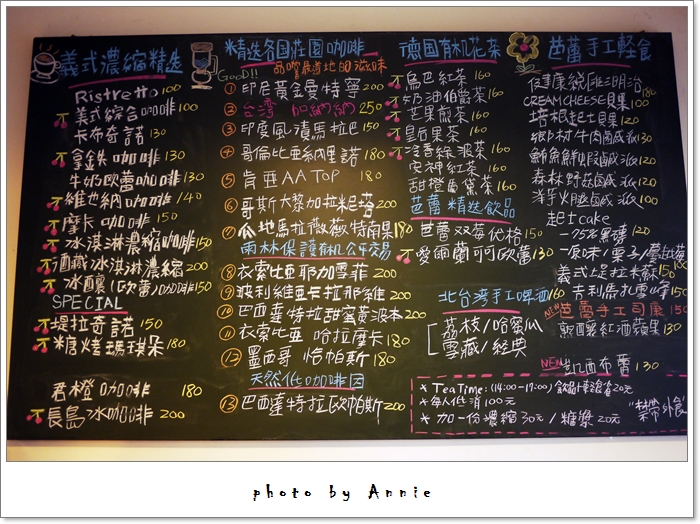 義式濃縮精選
Ristretto 100
義式綜合咖啡 100
卡布奇諾 130
拿鐵咖啡 130
牛奶歐蕾咖啡 130
維也納咖啡 140
摩卡咖啡 150
冰淇淋濃縮咖啡 150
酒藏冰淇淋濃縮 200
冰釀(歐蕾)咖啡 150
SPECIAL
堤拉奇諾 150
糖烤瑪琪朵 180
君橙咖啡 180
長島冰咖啡 200
精选各国莊園咖啡
GOOD!!
品嚐最道地的滋味
① 印尼黃金曼特寧 200
② 台湾 加納納 250
③ 印度風漬馬拉巴 150
④ 哥倫比亞納里諾 180
⑤ 肯亞AA TOP 180
⑥ 哥斯大黎加拉米塔 200
⑦ 瓜地馬拉薇薇特南果 180
雨林保護有机公平交易
⑧ 衣索比亞耶加雪菲 180
⑨ 玻利維亞卡拉那維 200
⑩ 巴西達特拉甜蜜黃波本 200
⑪ 衣索比亞 哈拉摩卡 180
⑫ 墨西哥 恰帕斯 180
天然低咖啡因
⑬ 巴西達特拉歐帕斯 200
德国有机花茶
烏巴紅茶 160
奶油伯爵茶 160
芒果煎茶 160
皇后果茶 160
冷香綠波茶 160
女神紅茶 160
甜橙角黛茶 160
芭蕾精选飲品
芭蕾双莓优格 150
愛爾蘭可可歐蕾 130
北台湾手工啤酒 160
荔枝/哈蜜瓜
雪藏/經典
芭蕾手工軽食
佐健康蔬Q三明治 180
CREAM CHEESE貝果 100
培根起士貝果 120
鄉村牛肉鹹派 130
鮪魚鮮蝦鹹派 120
森林野菇鹹派 120
洋芋火腿鹹派 120
起士cake
-75%黑磚 120
-原味/栗子/蔓越莓 100
義式堤拉米蘇 150
吉利馬扎雪峰 150
NEW 芭蕾手工司康 150
熙釀紅酒蘋果 130
NEW 凱西布蕾 130
* Tea Time:(14:00-17:00)飲品+甜點省20元
* 每人低消100元
* 加一份濃縮30元/糖漿20元
"禁帶外食"
photo by Annie